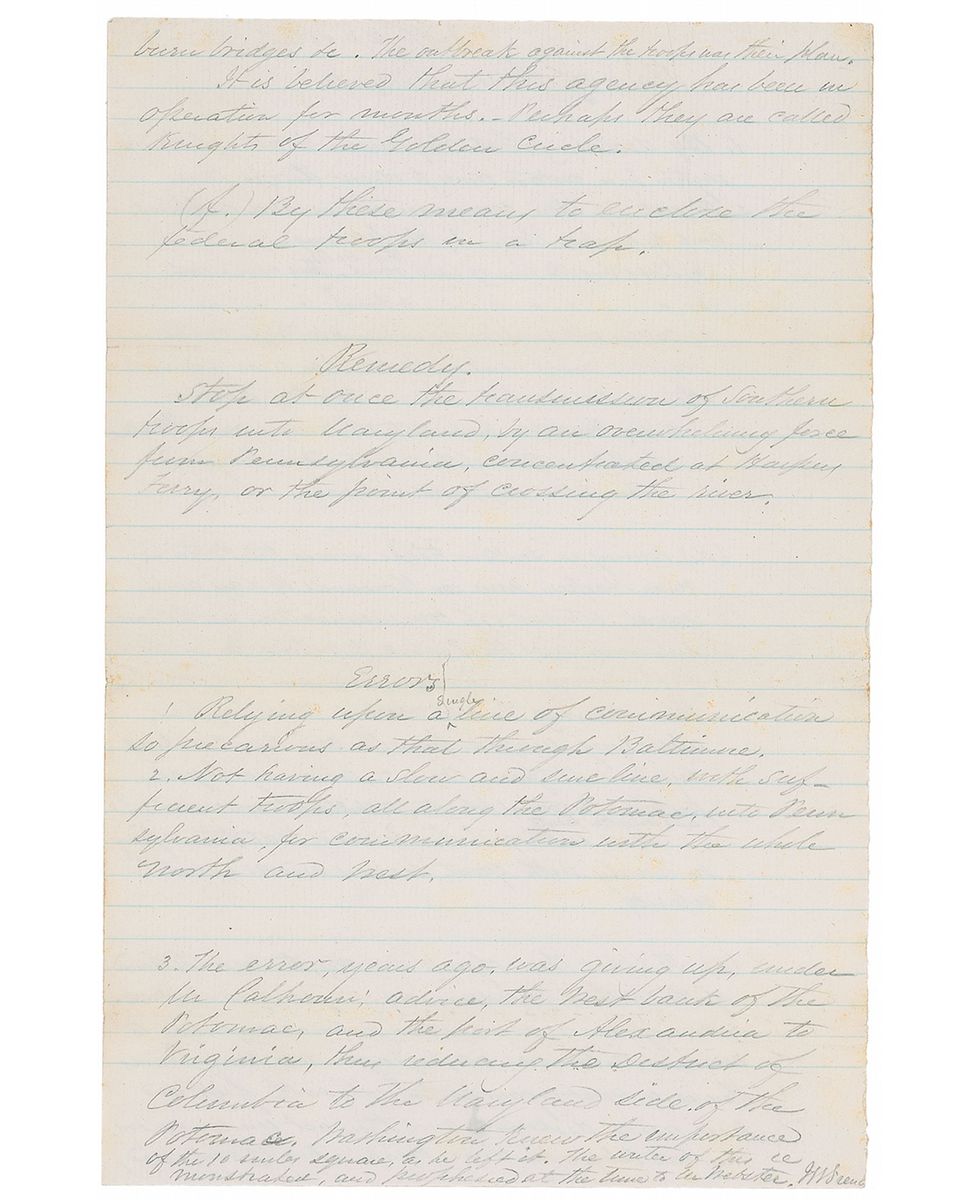 burn bridges &c. The outbreak against the troops was their plan.
It is believed that this agency has been in
operation for months. - Perhaps they are called
Knights of the Golden Circle.
(f.) By these means to enclose the
federal troops in a trap.
Remedy.
Stop at once the transmission of Southern
troops into Maryland, by an overwhelming force
from Pennsylvania, concentrated at Harpers
Ferry, or the point of crossing the river.
Errors
single
1 Relying upon a line of communication
so precarious as that through Baltimore.
2. Not having a slow and sure line, with suf-
ficient troops, all along the Potomac, into Penn
sylvania, for communication with the whole
North and West.
3. The error, years ago, was giving up, under
Mr Calhoun's advice, the West bank of the
Potomac, and the port of Alexandria to
Virginia, thus reducing the District of
Columbia to the Maryland side of the
Potomac. Washington knew the importance
of the 10 miles square, as he left it. The writer of this re
monstrated, and prophesied at the time to Mr Webster.